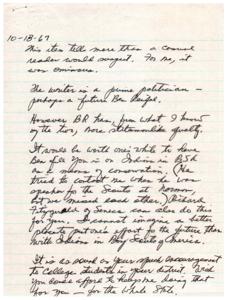 10-18-67
This item tells more than a casual
reader would suspect. For me, it
was ominous.
The writer is a prime politician —
perhaps a future Ben Reifel.
However BR has, from what I know
of the two, more statesmanlike quality.
It would be worth one's while to have
Ben tell you — on Indians in BSA
as a means of conservation. (He
tried to contact me when he was
speaker for the Scouts at
but we missed each other.) Richard
Fitzgerald of Seneca can also do this
for you. I cannot imagine a better
place to put one's effort for the future than
with Indians in Boy Scouts of America.
It is as sound as your
to College students in your district. Had
you
for you — for the whole State.